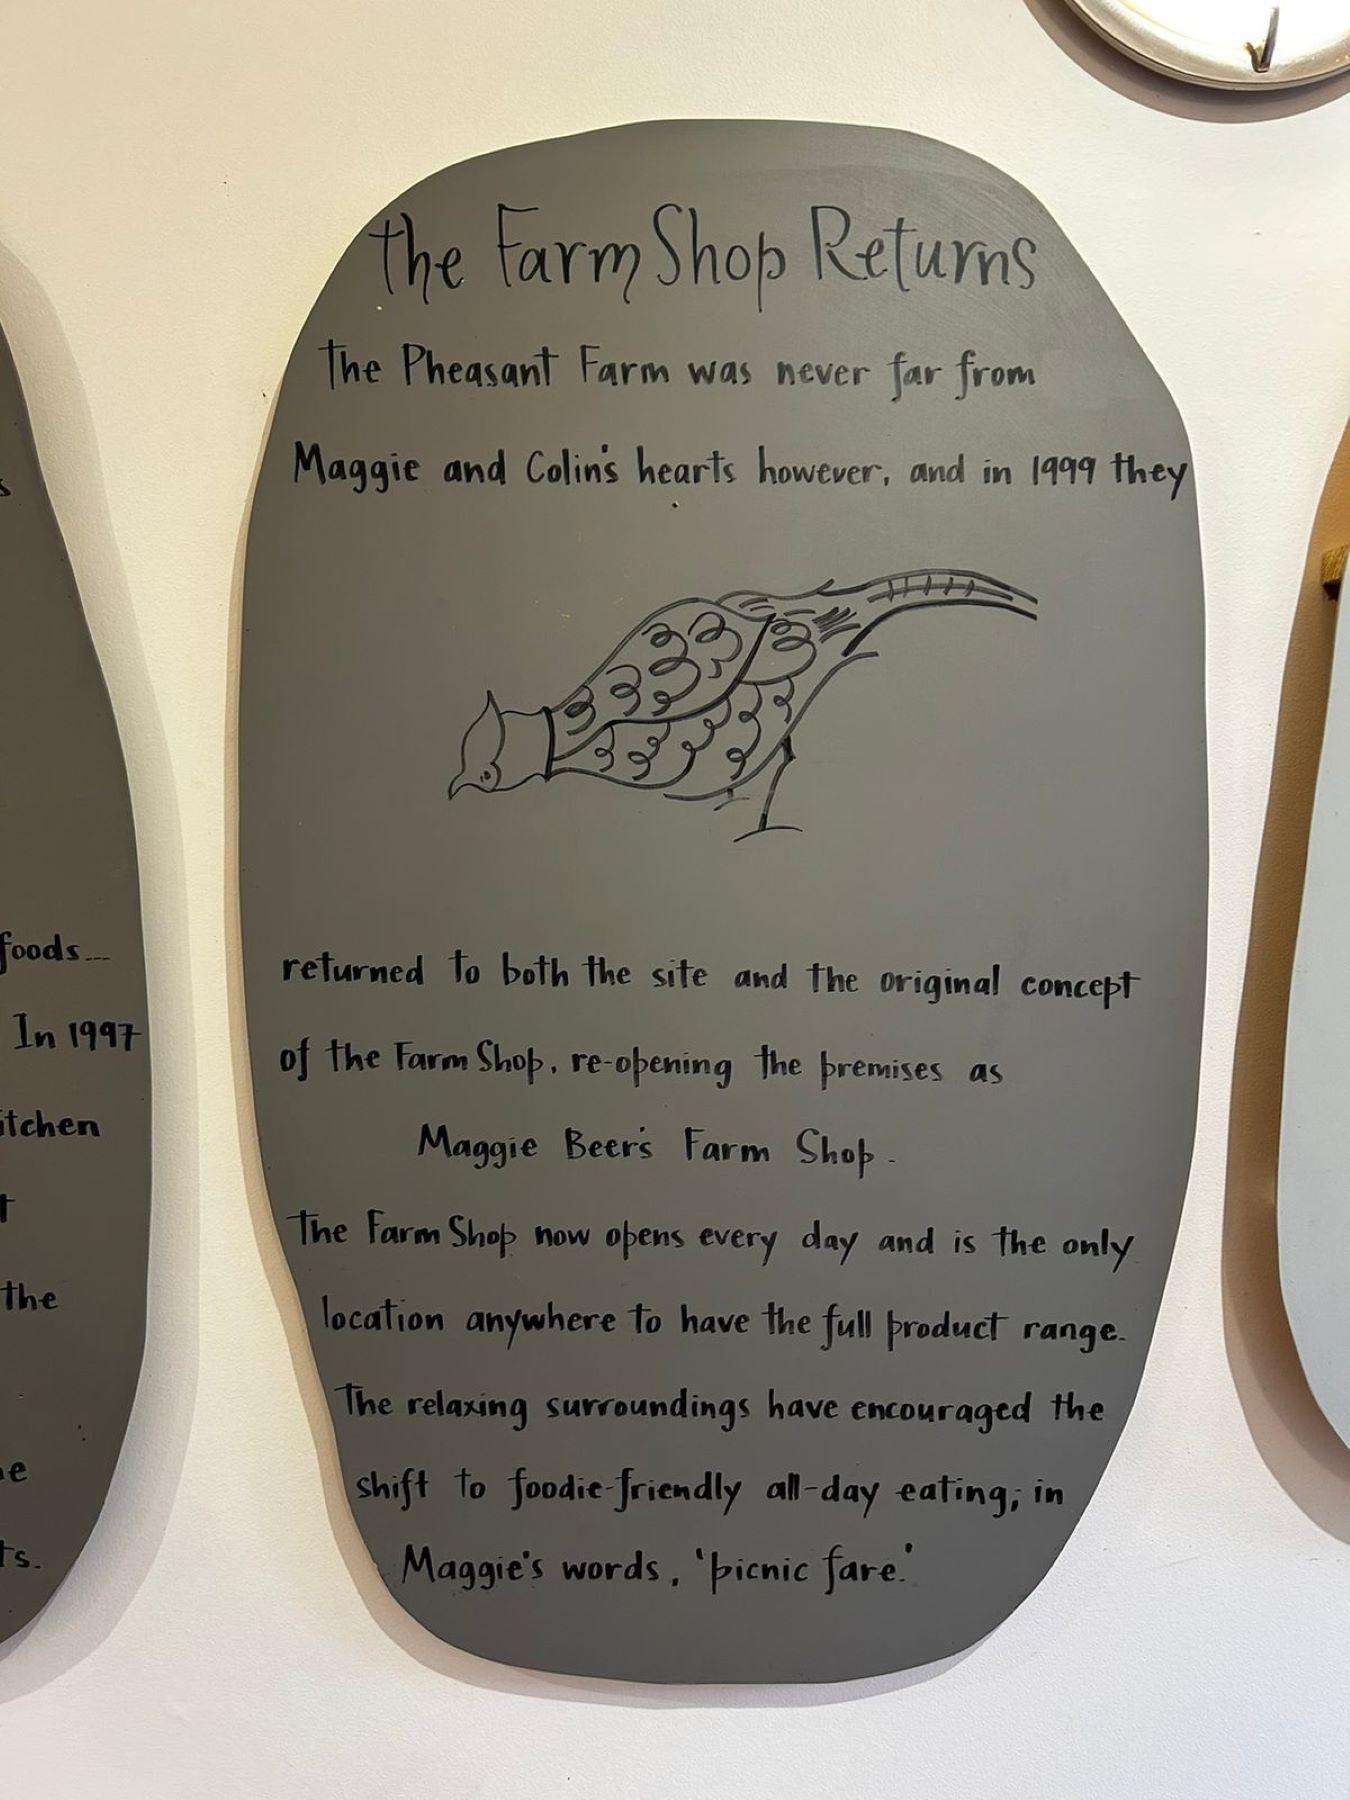 The Farm Shop Returns
The Pheasant Farm was never far from
Maggie and Colin's hearts however, and in 1999 they
returned to both the site and the original concept
of the Farm Shop, re-opening the premises as
Maggie Beer's Farm Shop.
The Farm Shop now opens every day and is the only
location anywhere to have the full product range.
The relaxing surroundings have encouraged the
shift to foodie-friendly all-day eating; in
Maggie's words, 'picnic fare.'
foods...
In 1997
itchen
t
the
e
ts.